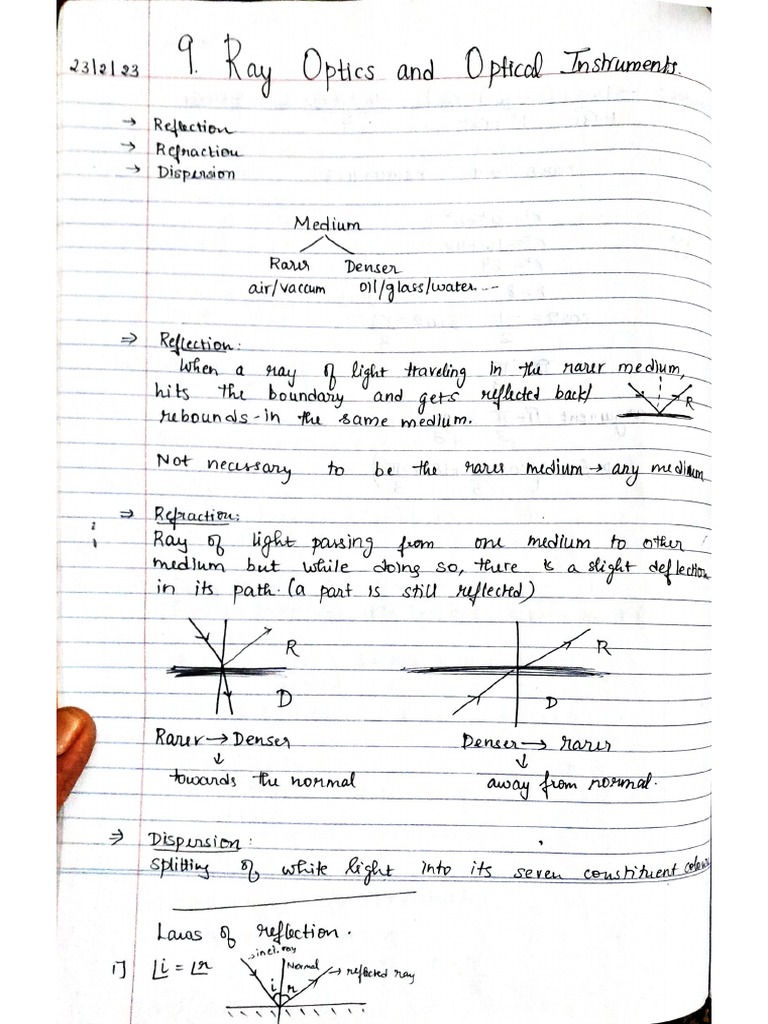 23/2/23 9. Ray Optics and Optical Instruments.
→ Reflection
→ Refraction
→ Dispersion
Medium
Rarer Denser
air/vaccum oil/glass/water....
⇒ Reflection:
When a ray of light traveling in the rarer medium,
hits the boundary and gets reflected back/
rebounds-in the same medium.
R
Not necessary to be the rarer medium → any medium
⇒ Refraction:
Ray of light passing from one medium to other
medium but while doing so, there is a slight deflection
in its path. (a part is still reflected)
R R
D D
Rarer → Denser Denser → rarer
↓ ↓
towards the normal away from normal.
⇒ Dispersion:
Splitting of white light into its seven constituent
Laws of reflection.
inci. ray
1] ∠i = ∠r Normal → reflected ray
i r